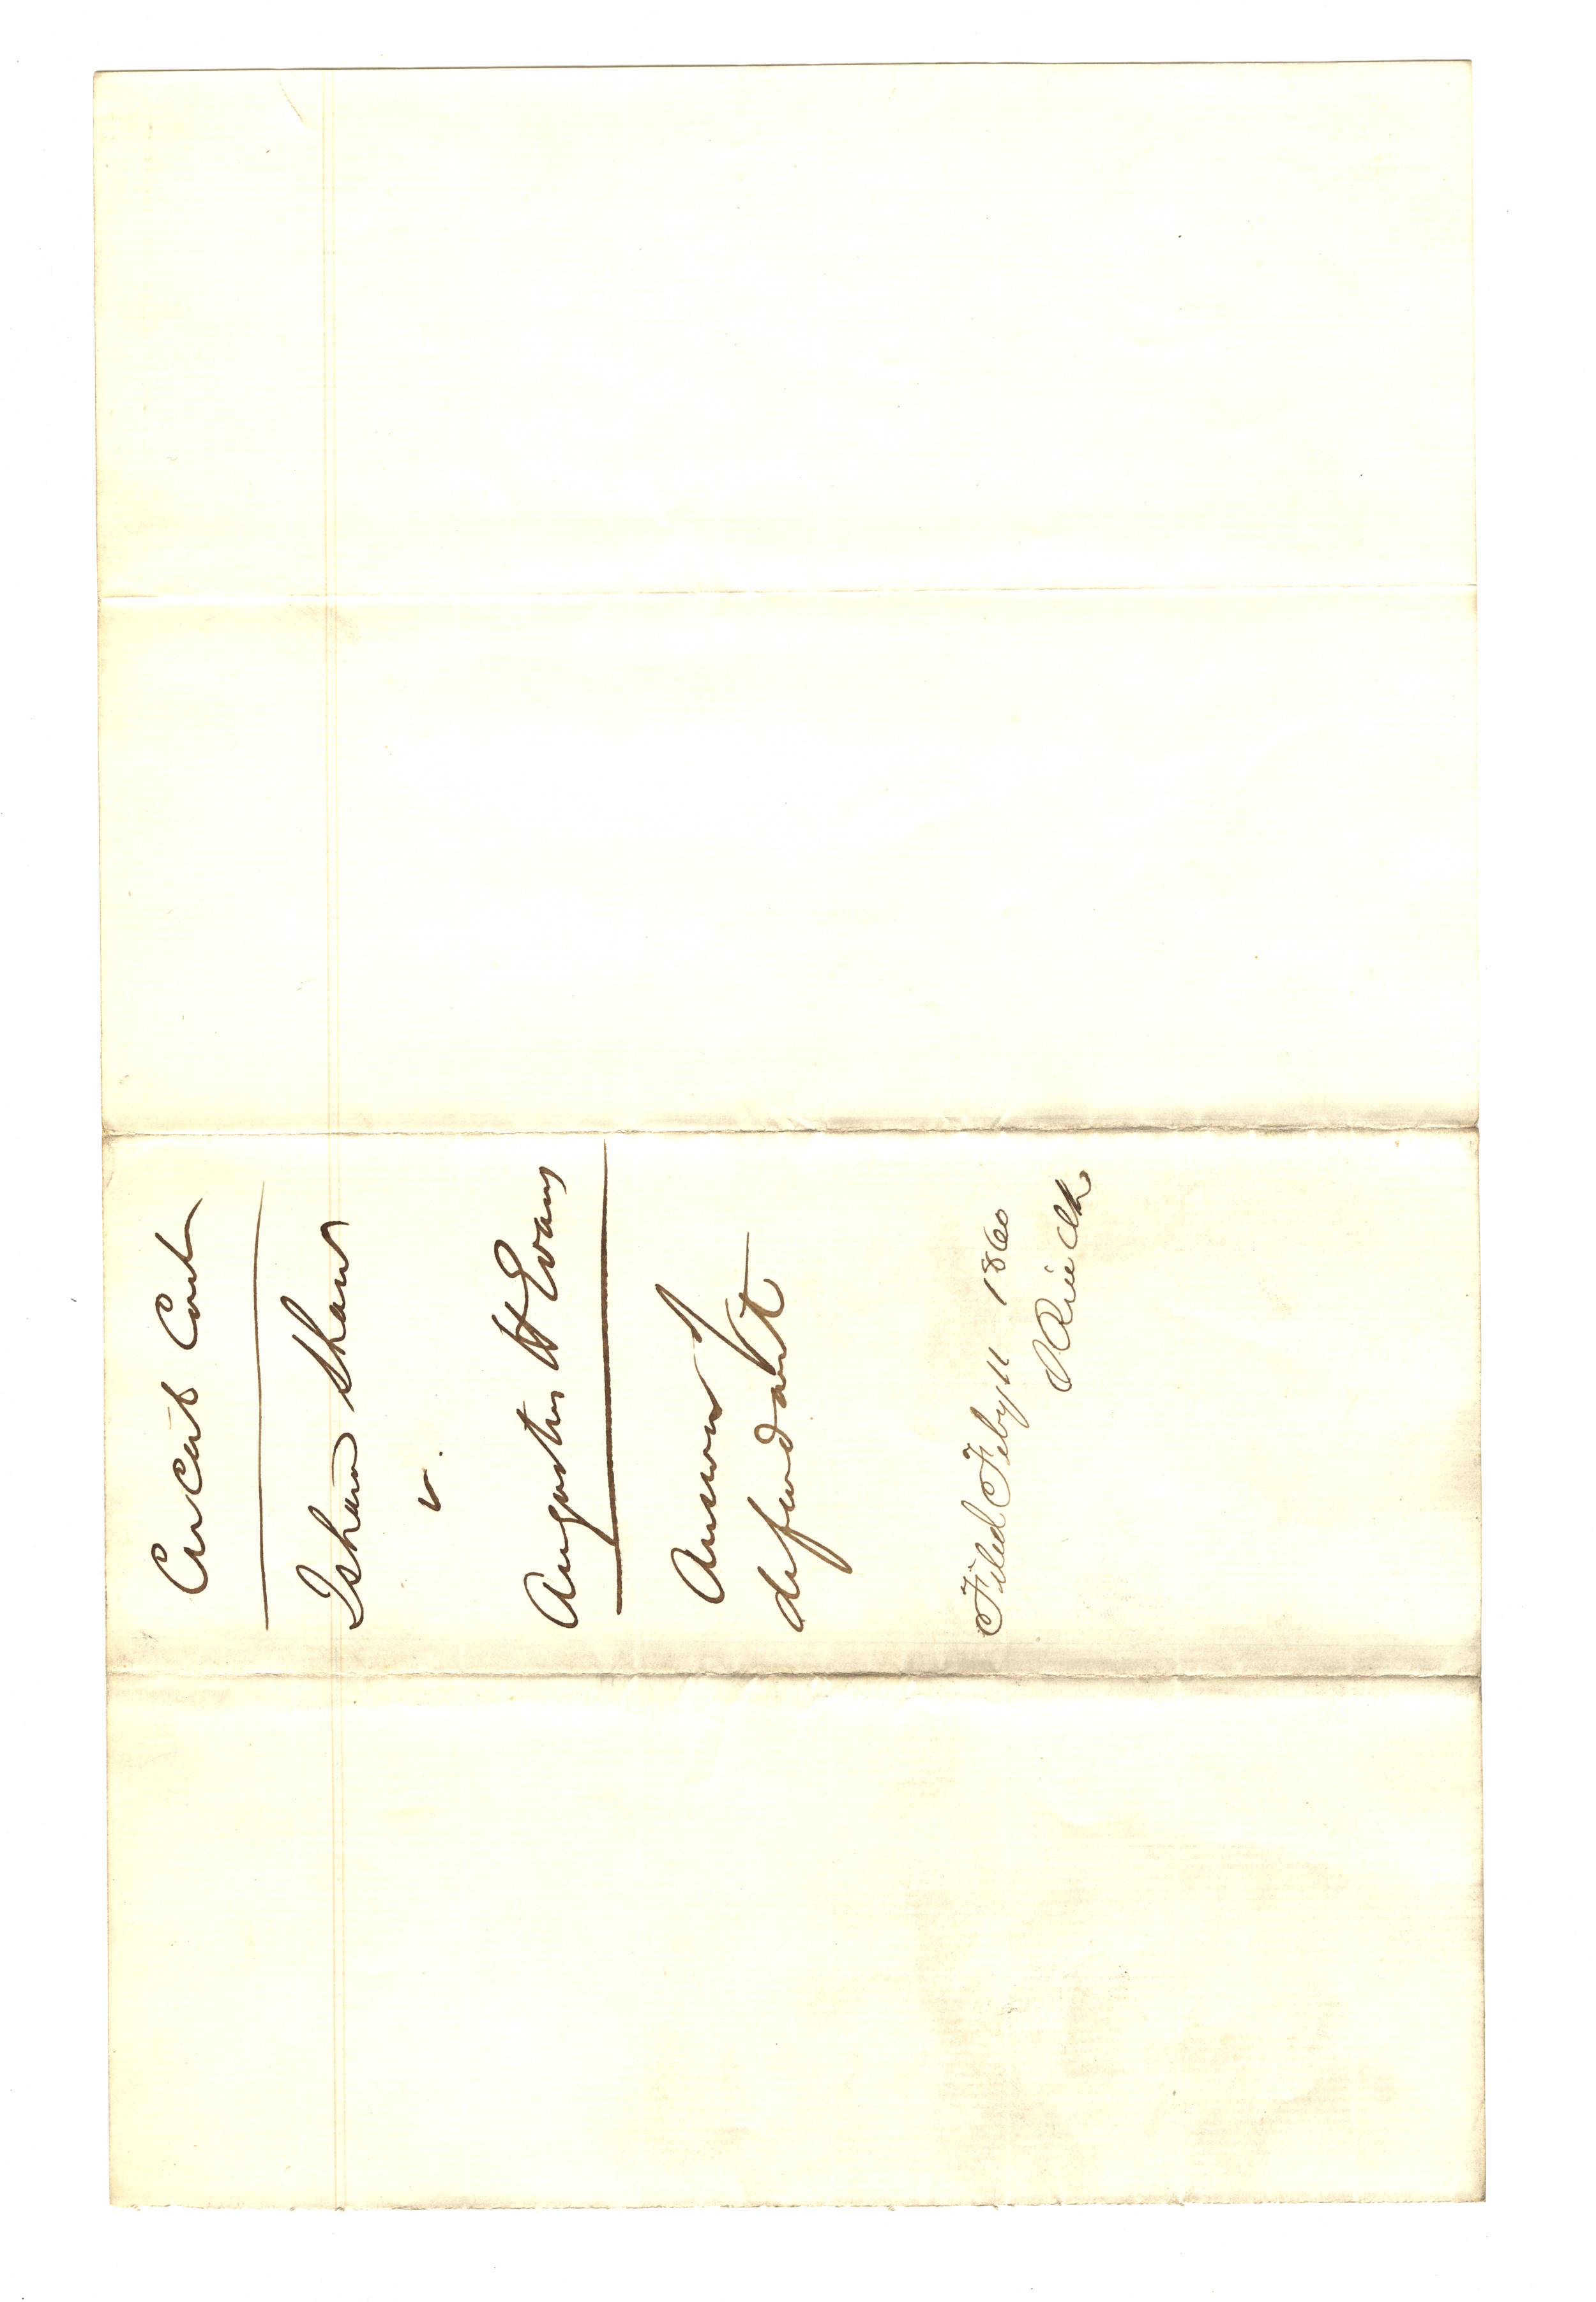 Circuit Court
Isham Shaw
v.
Augustus H Evans
Answer of
defendant
Filed Feby 11 1860
Rice Clk